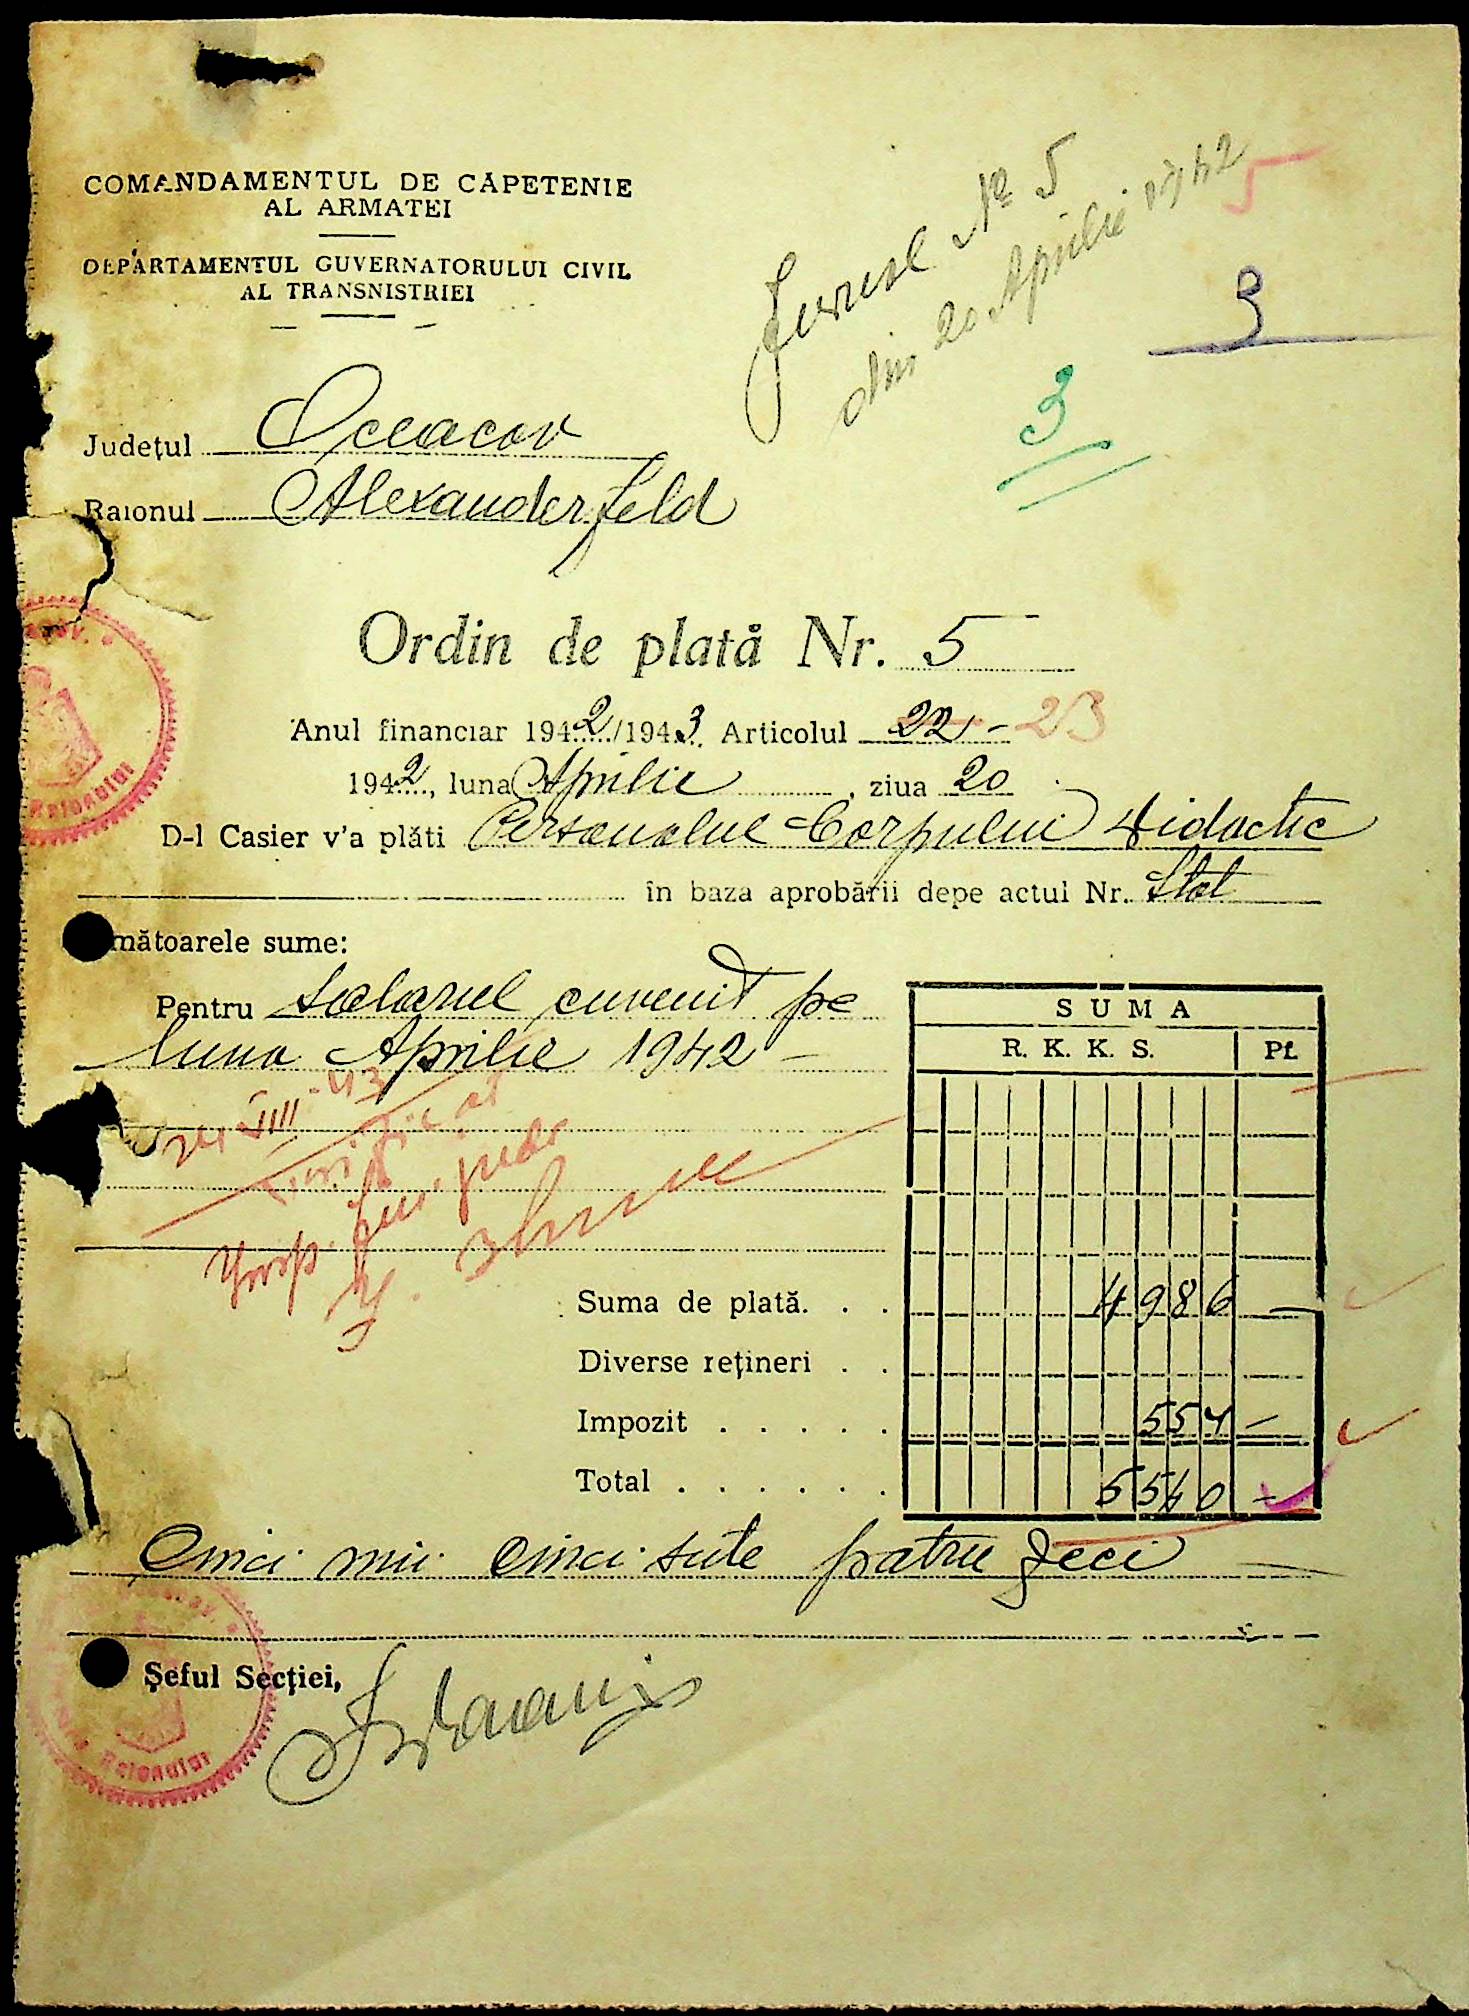 COMANDAMENTUL DE CAPETENIE
AL ARMATEI
DEPARTAMENTUL GUVERNATORULUI CIVIL
AL TRANSNISTRIEI
Jurnal No 5
din 20 Aprilie 1942
5
9
3
Județul Oceacov
Raionul Alexanderfeld
Ordin de plată Nr. 5
Anul financiar 1942/1943 Articolul 22 - 23
1942, luna Aprilie, ziua 20
D-l Casier v'a plăti Personalul Corpului Didactic
în baza aprobării depe actul Nr. Stat
mătoarele sume:
Pentru salariul cuvenit pe
luna Aprilie 1942 -
SUMA
R. K. K. S. Pf.
Verificat
Suma de plată. . . 4986 -
Diverse rețineri . .
Impozit . . . . . 554 -
Total . . . . . . 5540 -
Cinci mii cinci sute patru zeci
Șeful Secției,
Raionului
Raionului